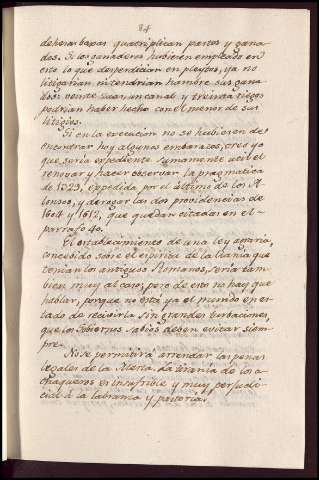 84
dehesas baxas quadruplican pastos y gana-
dos. Si los ganaderos hubiesen empleado en
esto lo que desperdician en pleytos, ya no
litigarian ni tendrian hambre sus gana
dos: veinte y un canal y treinta riegos
podrian haber hecho con el menor de sus
litigios.
Si en la execucion no se hubiesen de
encontrar hoy algunos embarazos, creo yo
que sería expediente sumamente util el
renovar y hacer observar la pragmatica
de 1329, expedida por el ultimo de los Al
fonsos, y derogar las dos providencias de
1604 y 1612, que quedan citadas en el
parrafo 40.
El establecimiento de una ley agraria,
concebido sobre el espiritu de la Licinia que
tenian los antiguos Romanos, sería tam
bien muy al caso; pero de esto no hay que
hablar, porque no está ya el mundo en es
tado de recibirla sin grandes turbaciones,
que los Gobiernos sabios deben evitar siem
pre.
No se permitirá arrendar las penas
legales de la Mesta. La tiranía de los a
chaqueros es insufrible y muy perjudi
cial á la labranza y pastoría.